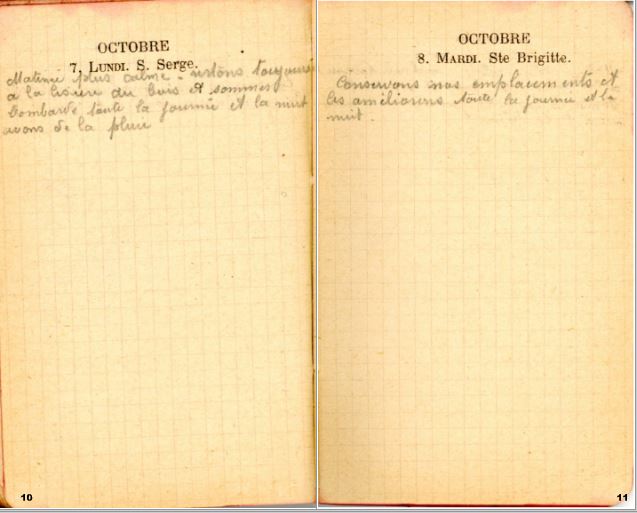 OCTOBRE
7. LUNDI. S. Serge.
Matinée plus calme - restons toujours
à la lisière du bois et sommes
bombardé toute la journée et la nuit
avons de la pluie
10
OCTOBRE
8. MARDI. Ste Brigitte.
Conservons nos emplacements et
les améliorons toute la journée et la
nuit.
11